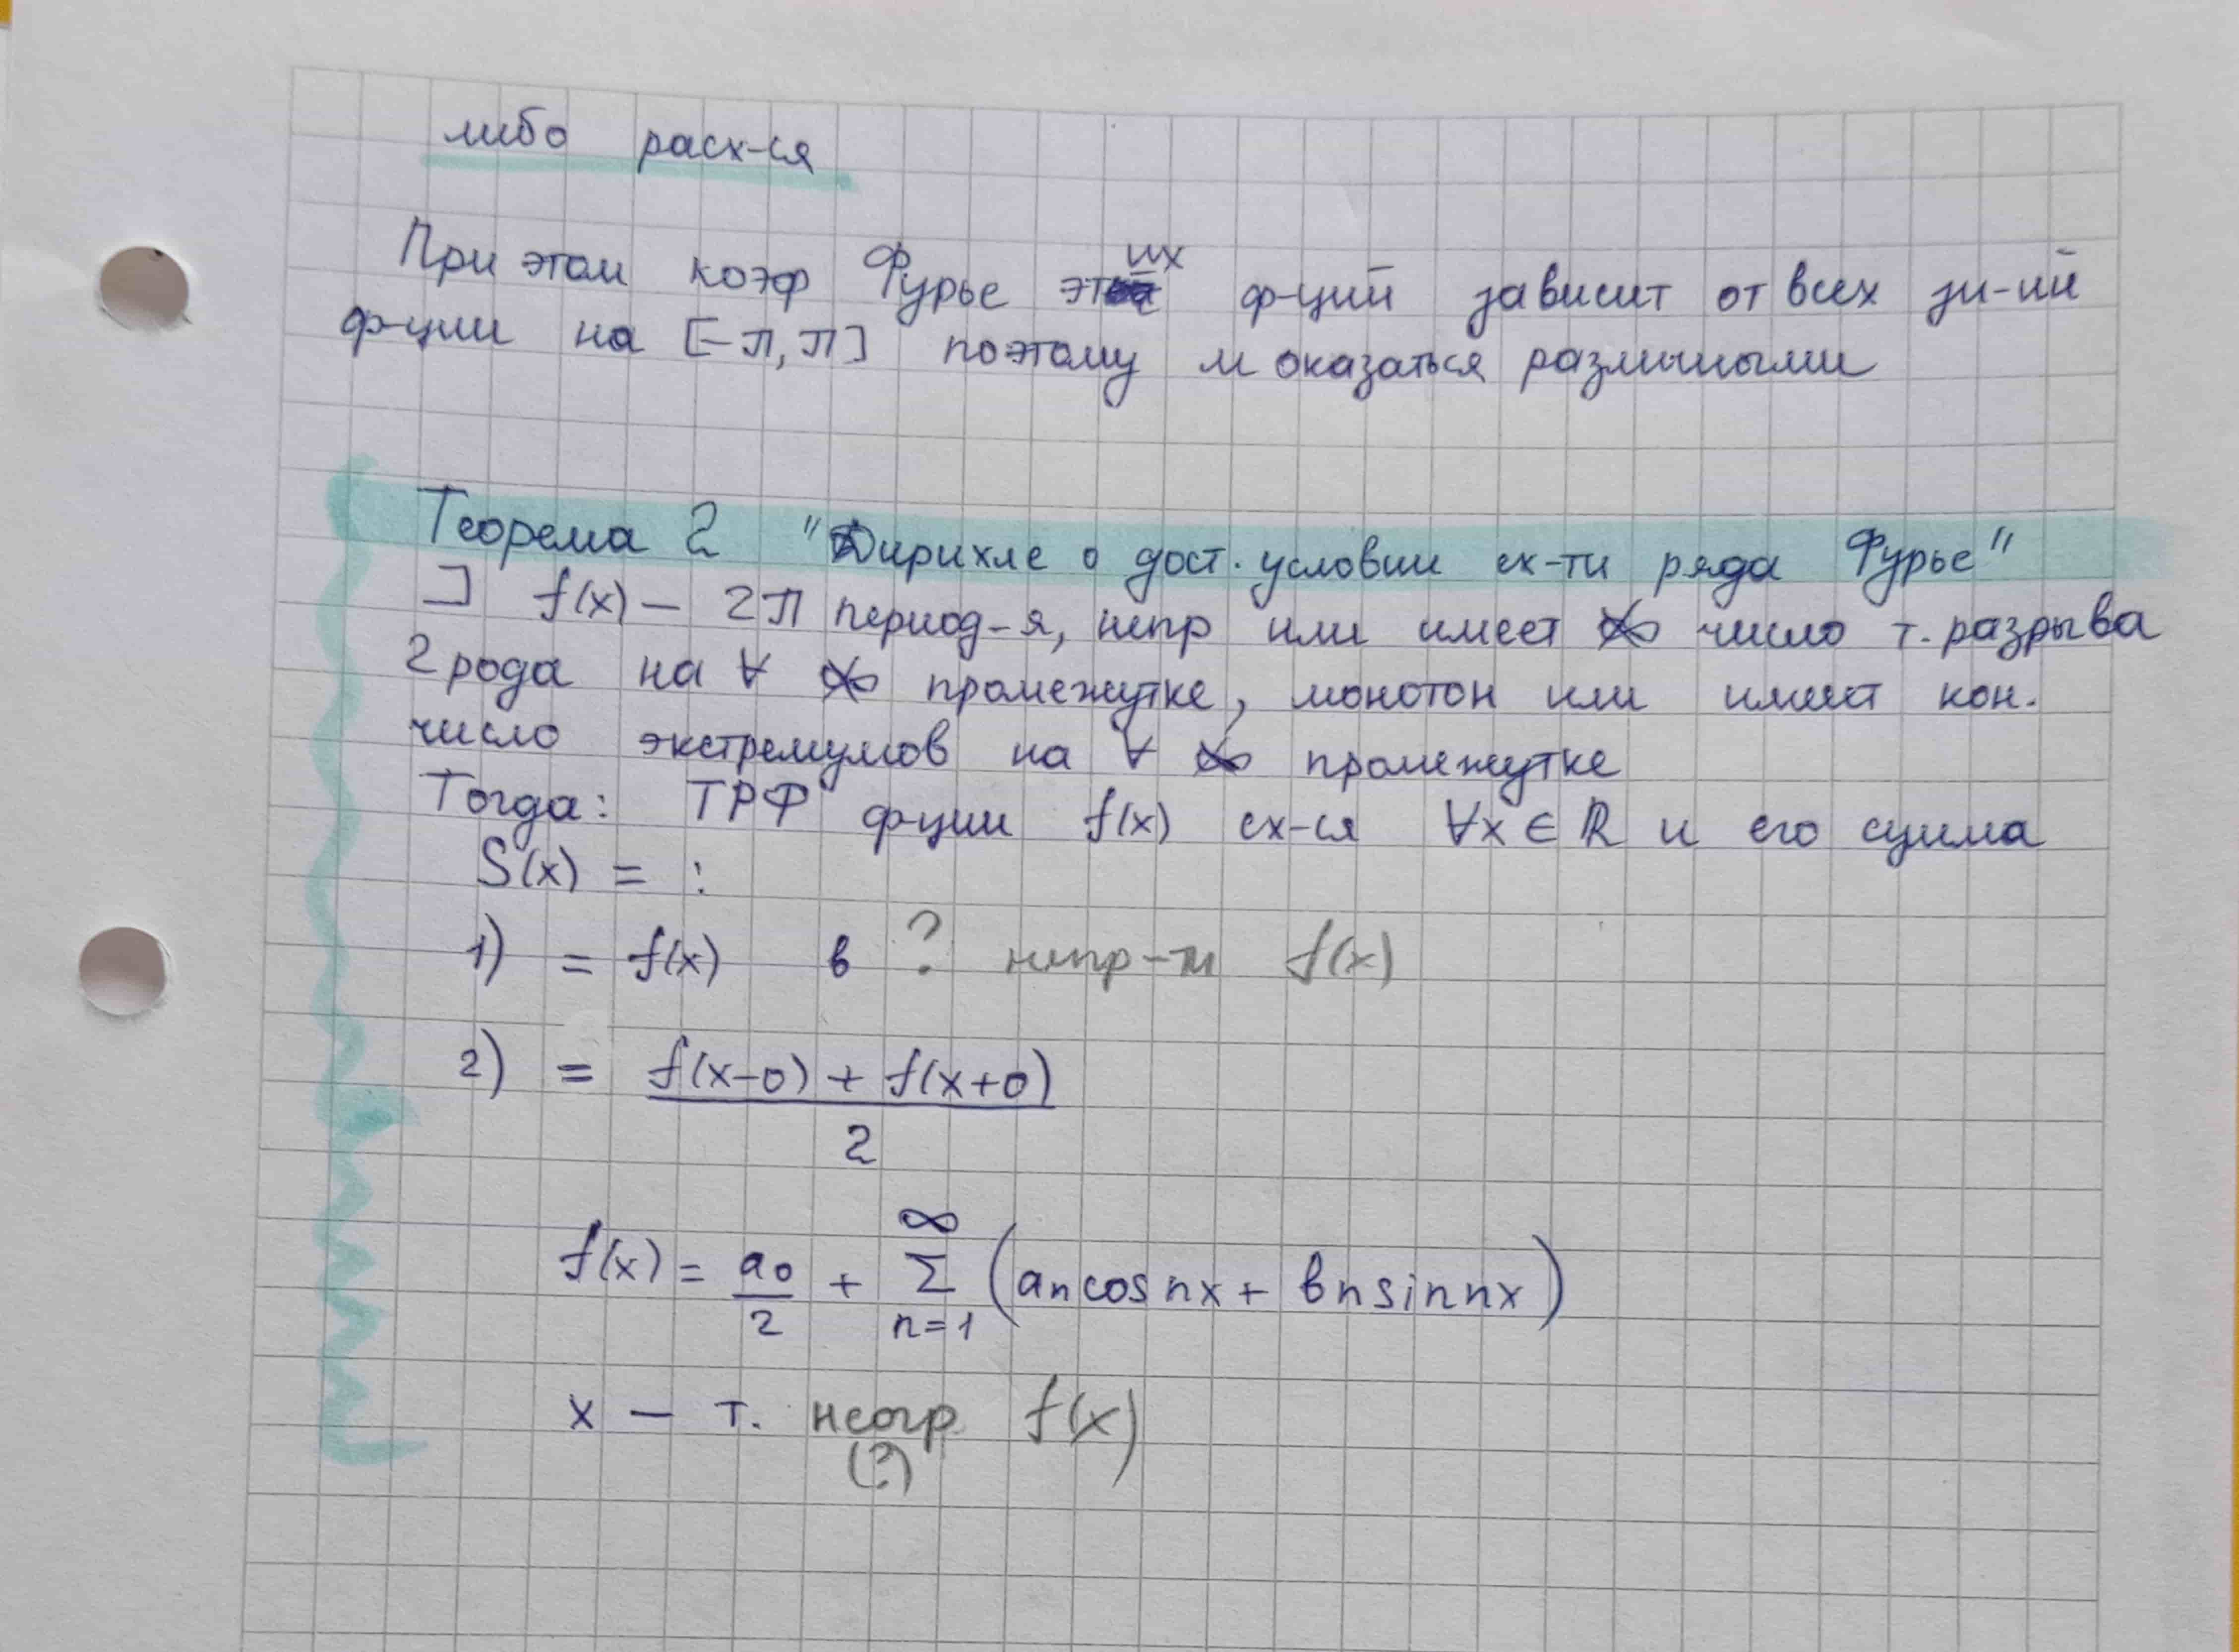 либо расх-ся
При этом коэф Фурье этих ф-ций зависит от всех зн-ий
ф-ции на [-π, π] поэтому м оказаться различными
Теорема 2 "Дирихле о дост. условии сх-ти ряда Фурье"
] f(x) — 2π период-я, непр или имеет ∞̸ число т. разрыва
2 рода на ∀ ∞̸ промежутке, монотон или имеет кон.
число экстремумов на ∀ ∞̸ промежутке
Тогда: ТРФ ф-ции f(x) сх-ся ∀x ∈ ℝ и его сумма
S(x) = :
1) = f(x) в ? непр-ти f(x)
2) = (f(x-0) + f(x+0)) / 2
f(x) = a0/2 + ∞ Σ n=1 (an cos nx + bn sin nx)
x — т. неогр f(x)
(?)